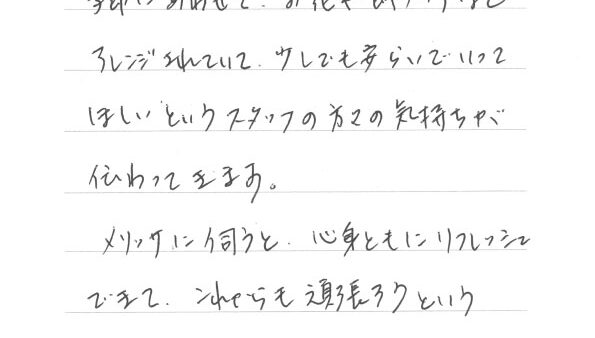 季節にあわせて、お花や
アレンジされていて、少しでも安らいでいって
ほしいというスタッフの方々の気持ちが
伝わってきます。
メリッサに伺うと、心身ともにリフレッシュ
できて、これからも頑張ろうという